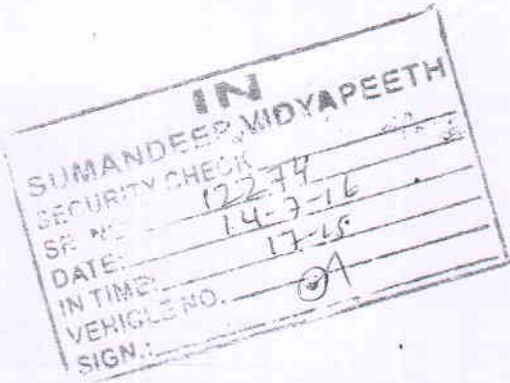 IN
SUMANDEEP VIDYAPEETH
SECURITY CHECK
SR NO. 12274
DATE: 14-7-16
IN TIME: 17-15
VEHICLE NO.
SIGN.: